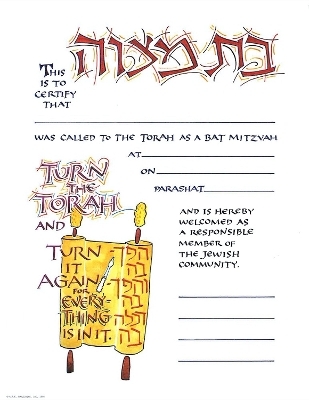 בת מצוה
THIS
IS TO
CERTIFY
THAT
WAS CALLED TO THE TORAH AS A BAT MITZVAH
AT
ON
PARASHAT
TURN
THE
TORAH
AND
TURN
IT
AGAIN
FOR
EVERY-
THING
IS IN IT.
AND IS HEREBY
WELCOMED AS
A RESPONSIBLE
MEMBER OF
THE JEWISH
COMMUNITY.